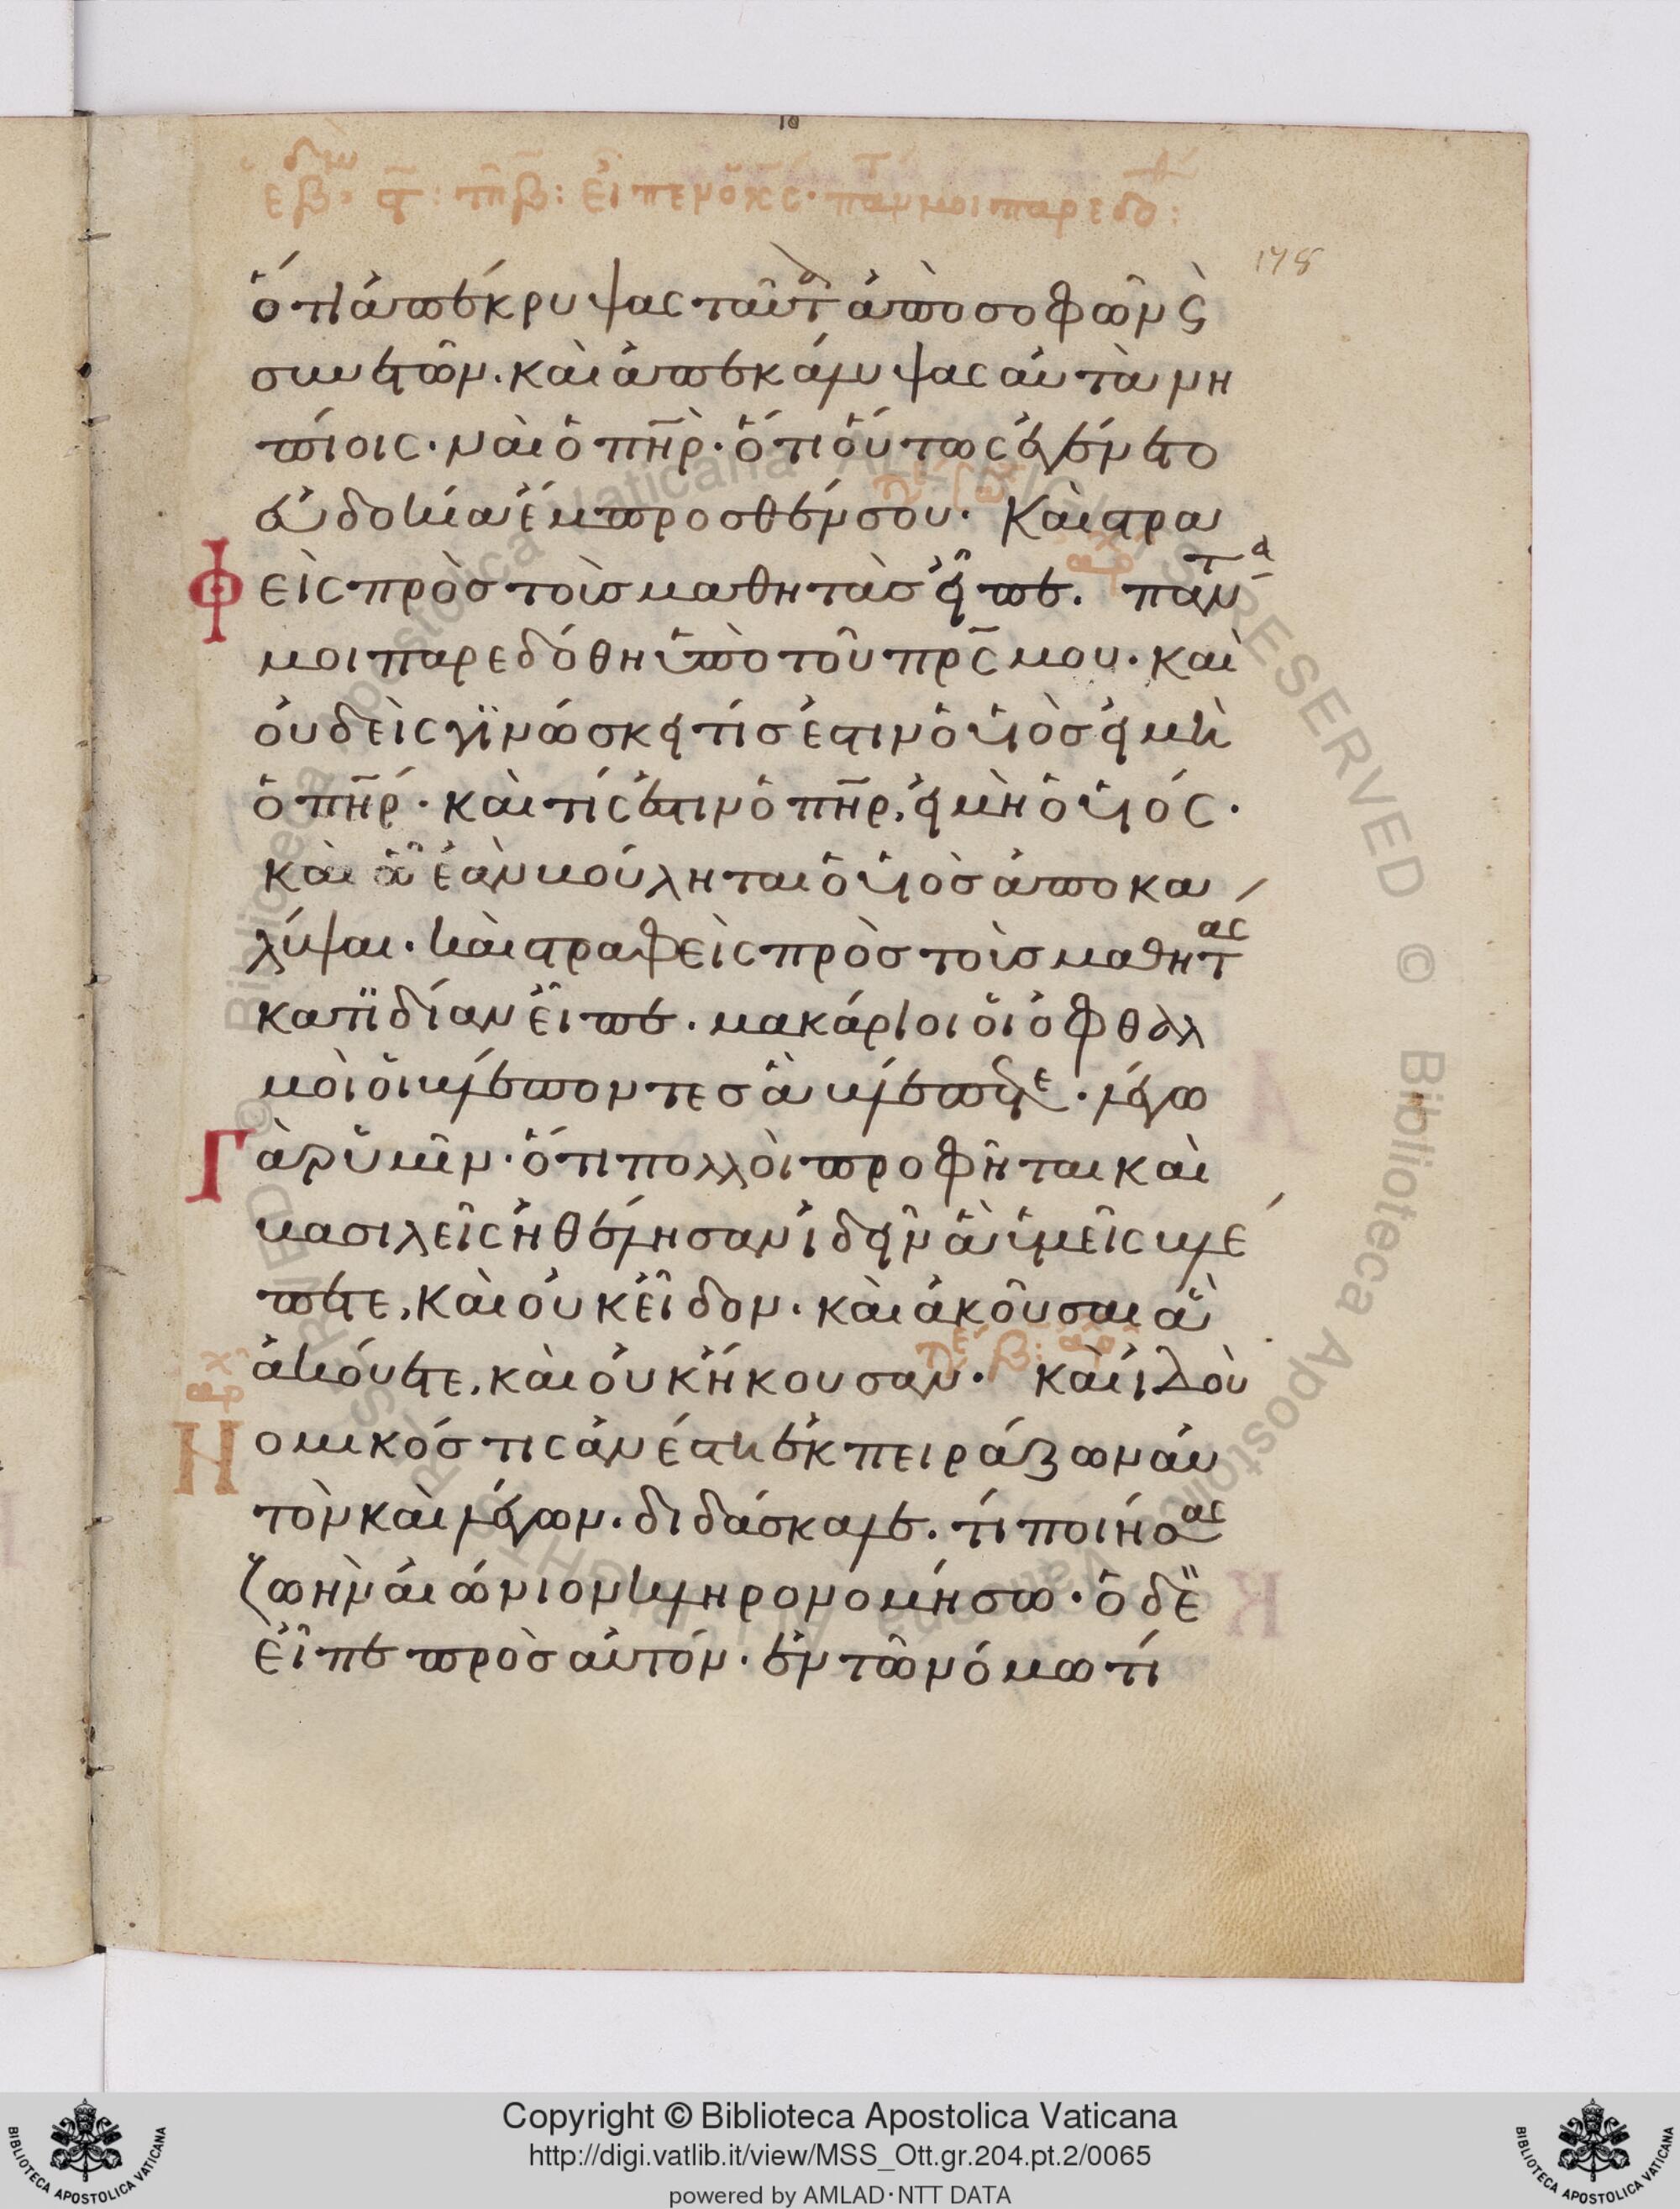 ὅτι ἀπέκρυψας ταῦτα ἀπὸ σοφῶν ϗ
συνετῶν. καὶ ἀπεκάλυψας αὐτὰ νη
πίοις· ναὶ ὁ πη̅ρ· ὅτι οὕτως ἐγένετο
εὐδοκία ἔμπροσθέν σου· Καὶ στρα
Φεὶς πρὸς τοὺς μαθητὰς εἶπε. πάντα
μοι παρεδόθη ὑπὸ τοῦ πρ̅ς μου· καὶ
οὐδεὶς γϊνώσκει τίς ἐστιν ὁ υἱὸς εἰ μὴ
ὁ πη̅ρ· καὶ τίς ἐστιν ὁ πη̅ρ, εἰ μὴ ὁ υἱός·
καὶ ᾧ ἐὰν βούληται ὁ υἱὸς ἀποκα
λύψαι· καὶ στραφεὶς πρὸς τοὺς μαθητὰς
κατϊδίαν εἶπε· μακάριοι οἱ ὀφθαλ
μοὶ οἱ βλέποντες ἃ βλέπετε· λέγω
Γὰρ ὑμῖν· ὅτι πολλοὶ προφῆται καὶ
βασιλεῖς ἠθέλησαν ἰδεῖν ἃ ὑμεῖς βλέ
πετε, καὶ οὐκ εἶδον· καὶ ἀκοῦσαι ἃ
ἀκούετε, καὶ οὐκ ἤκουσαν· Καὶ ἰδοὺ
Νομικός τις ἀνέστη ἐκπειράζων αὐ
τὸν καὶ λέγων· διδάσκαλε. τί ποιήσας
ζωὴν αἰώνιον κληρονομήσω· ὁ δὲ
εἶπε πρὸς αὐτόν· ἐν τῶ νόμω τί
178
Copyright © Biblioteca Apostolica Vaticana
http://digi.vatlib.it/view/MSS_Ott.gr.204.pt.2/0065
powered by AMLAD·NTT DATA
BIBLIOTECA APOSTOLICA VATICANA
BIBLIOTECA APOSTOLICA VATICANA